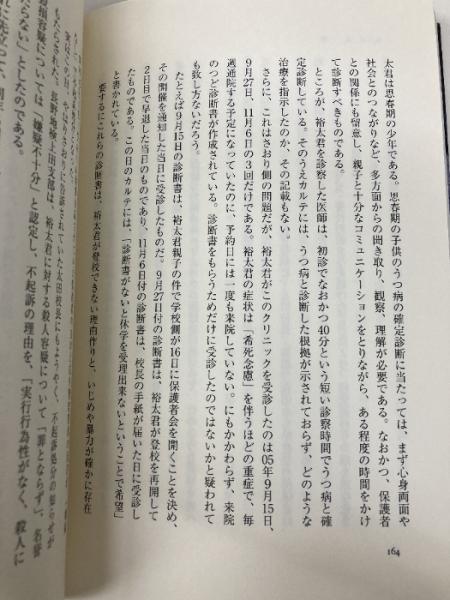 太君は思春期の少年である。思春期の子供のうつ病の確定診断に当たっては、まず心身両面や
社会とのつながりなど、多方面からの聞き取り、観察、理解が必要である。なおかつ、保護者
との関係にも留意し、親子と十分なコミュニケーションをとりながら、ある程度の時間をかけ
て診断すべきものである。
ところが、裕太君を診察した医師は、初診でなおかつ40分という短い診察時間でうつ病と確
定診断している。そのうえカルテには、うつ病と診断した根拠が示されておらず、どのような
治療を指示したのか、その記載もない。
さらに、これはさおり側の問題だが、裕太君がこのクリニックを受診したのは05年9月15日、
9月27日、11月6日の3回だけである。裕太君の症状は「希死念慮」を伴うほどの重症で、毎
週通院する予定になっていたのに、予約日には一度も来院していない。にもかかわらず、来院
のつど診断書が作成されている。診断書をもらうためだけに受診したのではないかと疑われて
も致し方ないだろう。
たとえば9月15日の診断書は、裕太君親子の件で学校側が16日に保護者会を開くことを決め、
その開催を通知した当日に受診したものだ。9月27日付の診断書は、裕太君が登校を再開して
2日目で早退した当日のものであり、11月6日付の診断書は、校長の手紙が届いた日に受診し
たものである。この日のカルテには、「診断書がないと休学を受理出来ないということで希望」
と書かれている。
要するにこれらの診断書は、裕太君が登校できない理由作りと、いじめや暴力が確かに存在
164
実はこの日、やはりさおりに告訴されていた太田校長にもようやく、不起訴処分の知らせが
もたらされた。長野地検上田支部は、裕太君に対する殺人容疑について「罪とならず」、名誉
毀損容疑については「嫌疑不十分」と認定し、不起訴の理由を、「実行行為性がなく、殺人に
たらない」としたのである。